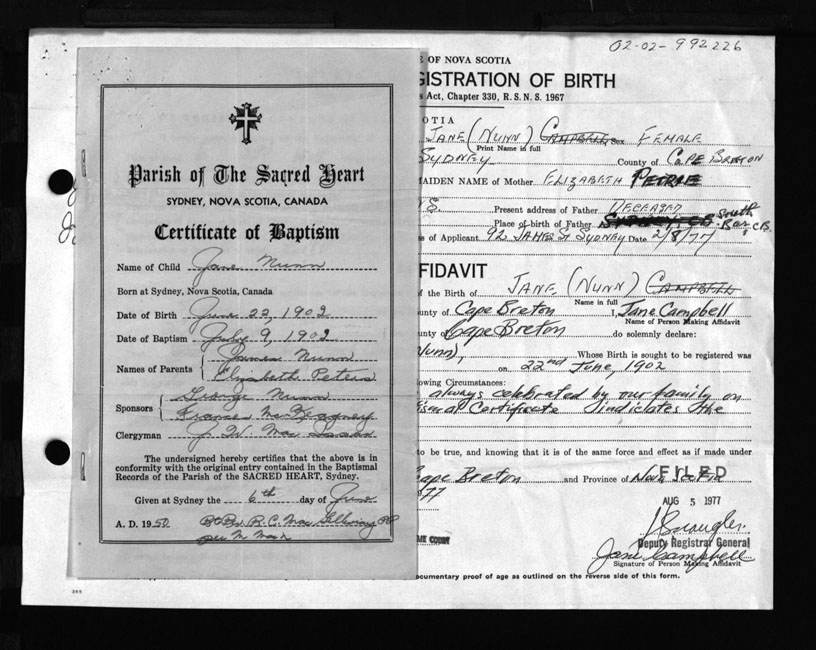 02-02-992226
Parish of The Sacred Heart
SYDNEY, NOVA SCOTIA, CANADA
Certificate of Baptism
Name of Child Jane Nunn
Born at Sydney, Nova Scotia, Canada
Date of Birth June 22, 1902
Date of Baptism July 9, 1902
Names of Parents James Nunn
Elizabeth Peters
Sponsors George Nunn
Frances
Clergyman J. W. Mac
The undersigned hereby certifies that the above is in
conformity with the original entry contained in the Baptismal
Records of the Parish of the SACRED HEART, Sydney.
Given at Sydney the 6th day of June
A. D. 1950 R. C. Mac PP
per M
E OF NOVA SCOTIA
GISTRATION OF BIRTH
s Act, Chapter 330, R. S. N. S. 1967
OTIA
JANE (NUNN) CAMPBELL Sex FEMALE
Print Name in full
SYDNEY County of CAPE BRETON
MAIDEN NAME of Mother ELIZABETH PETRIE
NS. Present address of Father DECEASED
Place of birth of Father South Bar, C.B.
s of Applicant 92 JAMES St SYDNEY Date 2/8/77
FIDAVIT
f the Birth of JANE (NUNN) CAMPBELL
Name in full
unty of Cape Breton I, Jane Campbell
Name of Person Making Affidavit
unty of Cape Breton do solemnly declare:
Nunn), Whose Birth is sought to be registered was
on 22nd June, 1902
lowing Circumstances:
always celebrated by our family on
Certificate indicates the
to be true, and knowing that it is of the same force and effect as if made under
Cape Breton and Province of Nova Scotia
977
FILED
AUG 5 1977
Deputy Registrar General
Jane Campbell
Signature of Person Making Affidavit
ocumentary proof of age as outlined on the reverse side of this form.